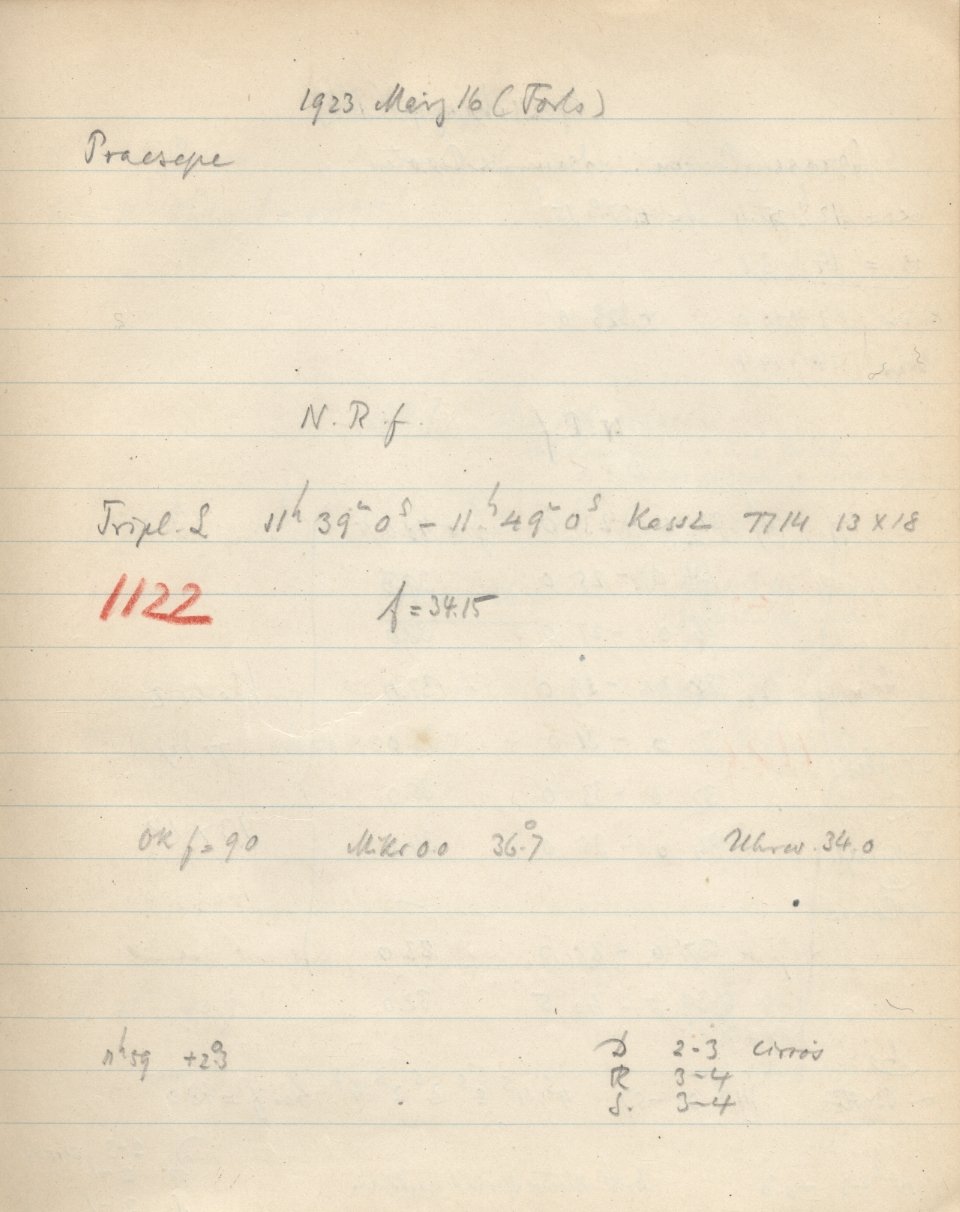 1923 März 16 (Forts)
Praesepe
N. R. f.
Tripl. L 11h 39m 0s – 11h 49m 0s Kass 2 7714 13 x 18
1122 f = 34.15
OK f = 90 Mikr 0.0 36°.7 Uhrw. 34.0
11h 59 +2°.3 D 2-3 Cirrös
R 3-4
S. 3-4